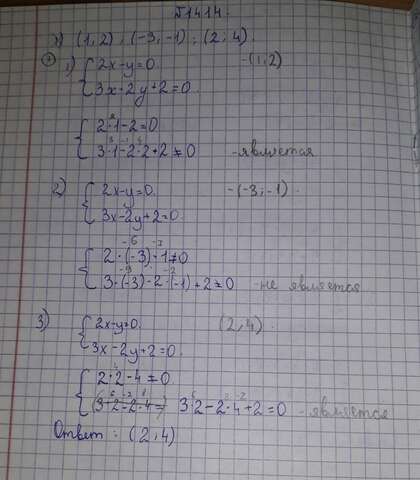 №1414.
1) (1,2) ; (-3,-1) ; (2;4).
1) { 2x-y=0 -(1,2)
3x-2y+2=0.
{ 2·1-2=0
3·1-2·2+2≠0 -является
2) { 2x-y=0. -(-3;-1).
3x-2y+2=0.
{ 2·(-3)-1≠0
3·(-3)-2·(-1)+2≠0 -не является
3) { 2x-y=0. (2,4)
3x-2y+2=0.
{ 2·2-4=0.
3·2-2·4+2=0 -является
Ответ: (2,4)